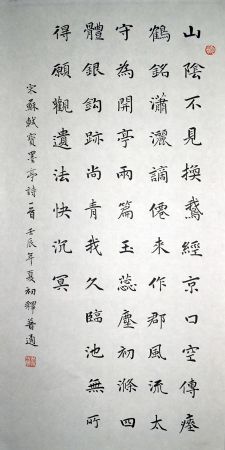 山陰不見換鵞經京口空傳瘞
鶴銘瀟灑謫僊來作郡風流太
守為開亭兩篇玉蕊塵初滌四
體銀鈎跡尚青我久臨池無所
得願觀遺法快沉冥
宋蘇軾寶墨亭詩一首壬辰年夏初釋普適